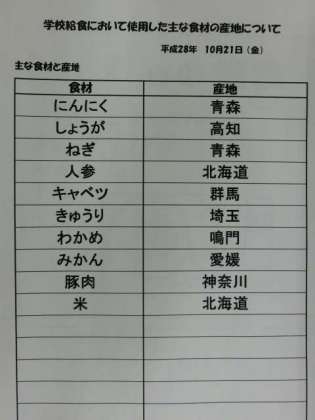 学校給食において使用した主な食材の産地について
平成28年 10月21日（金）
主な食材と産地
食材 産地
にんにく 青森
しょうが 高知
ねぎ 青森
人参 北海道
キャベツ 群馬
きゅうり 埼玉
わかめ 鳴門
みかん 愛媛
豚肉 神奈川
米 北海道